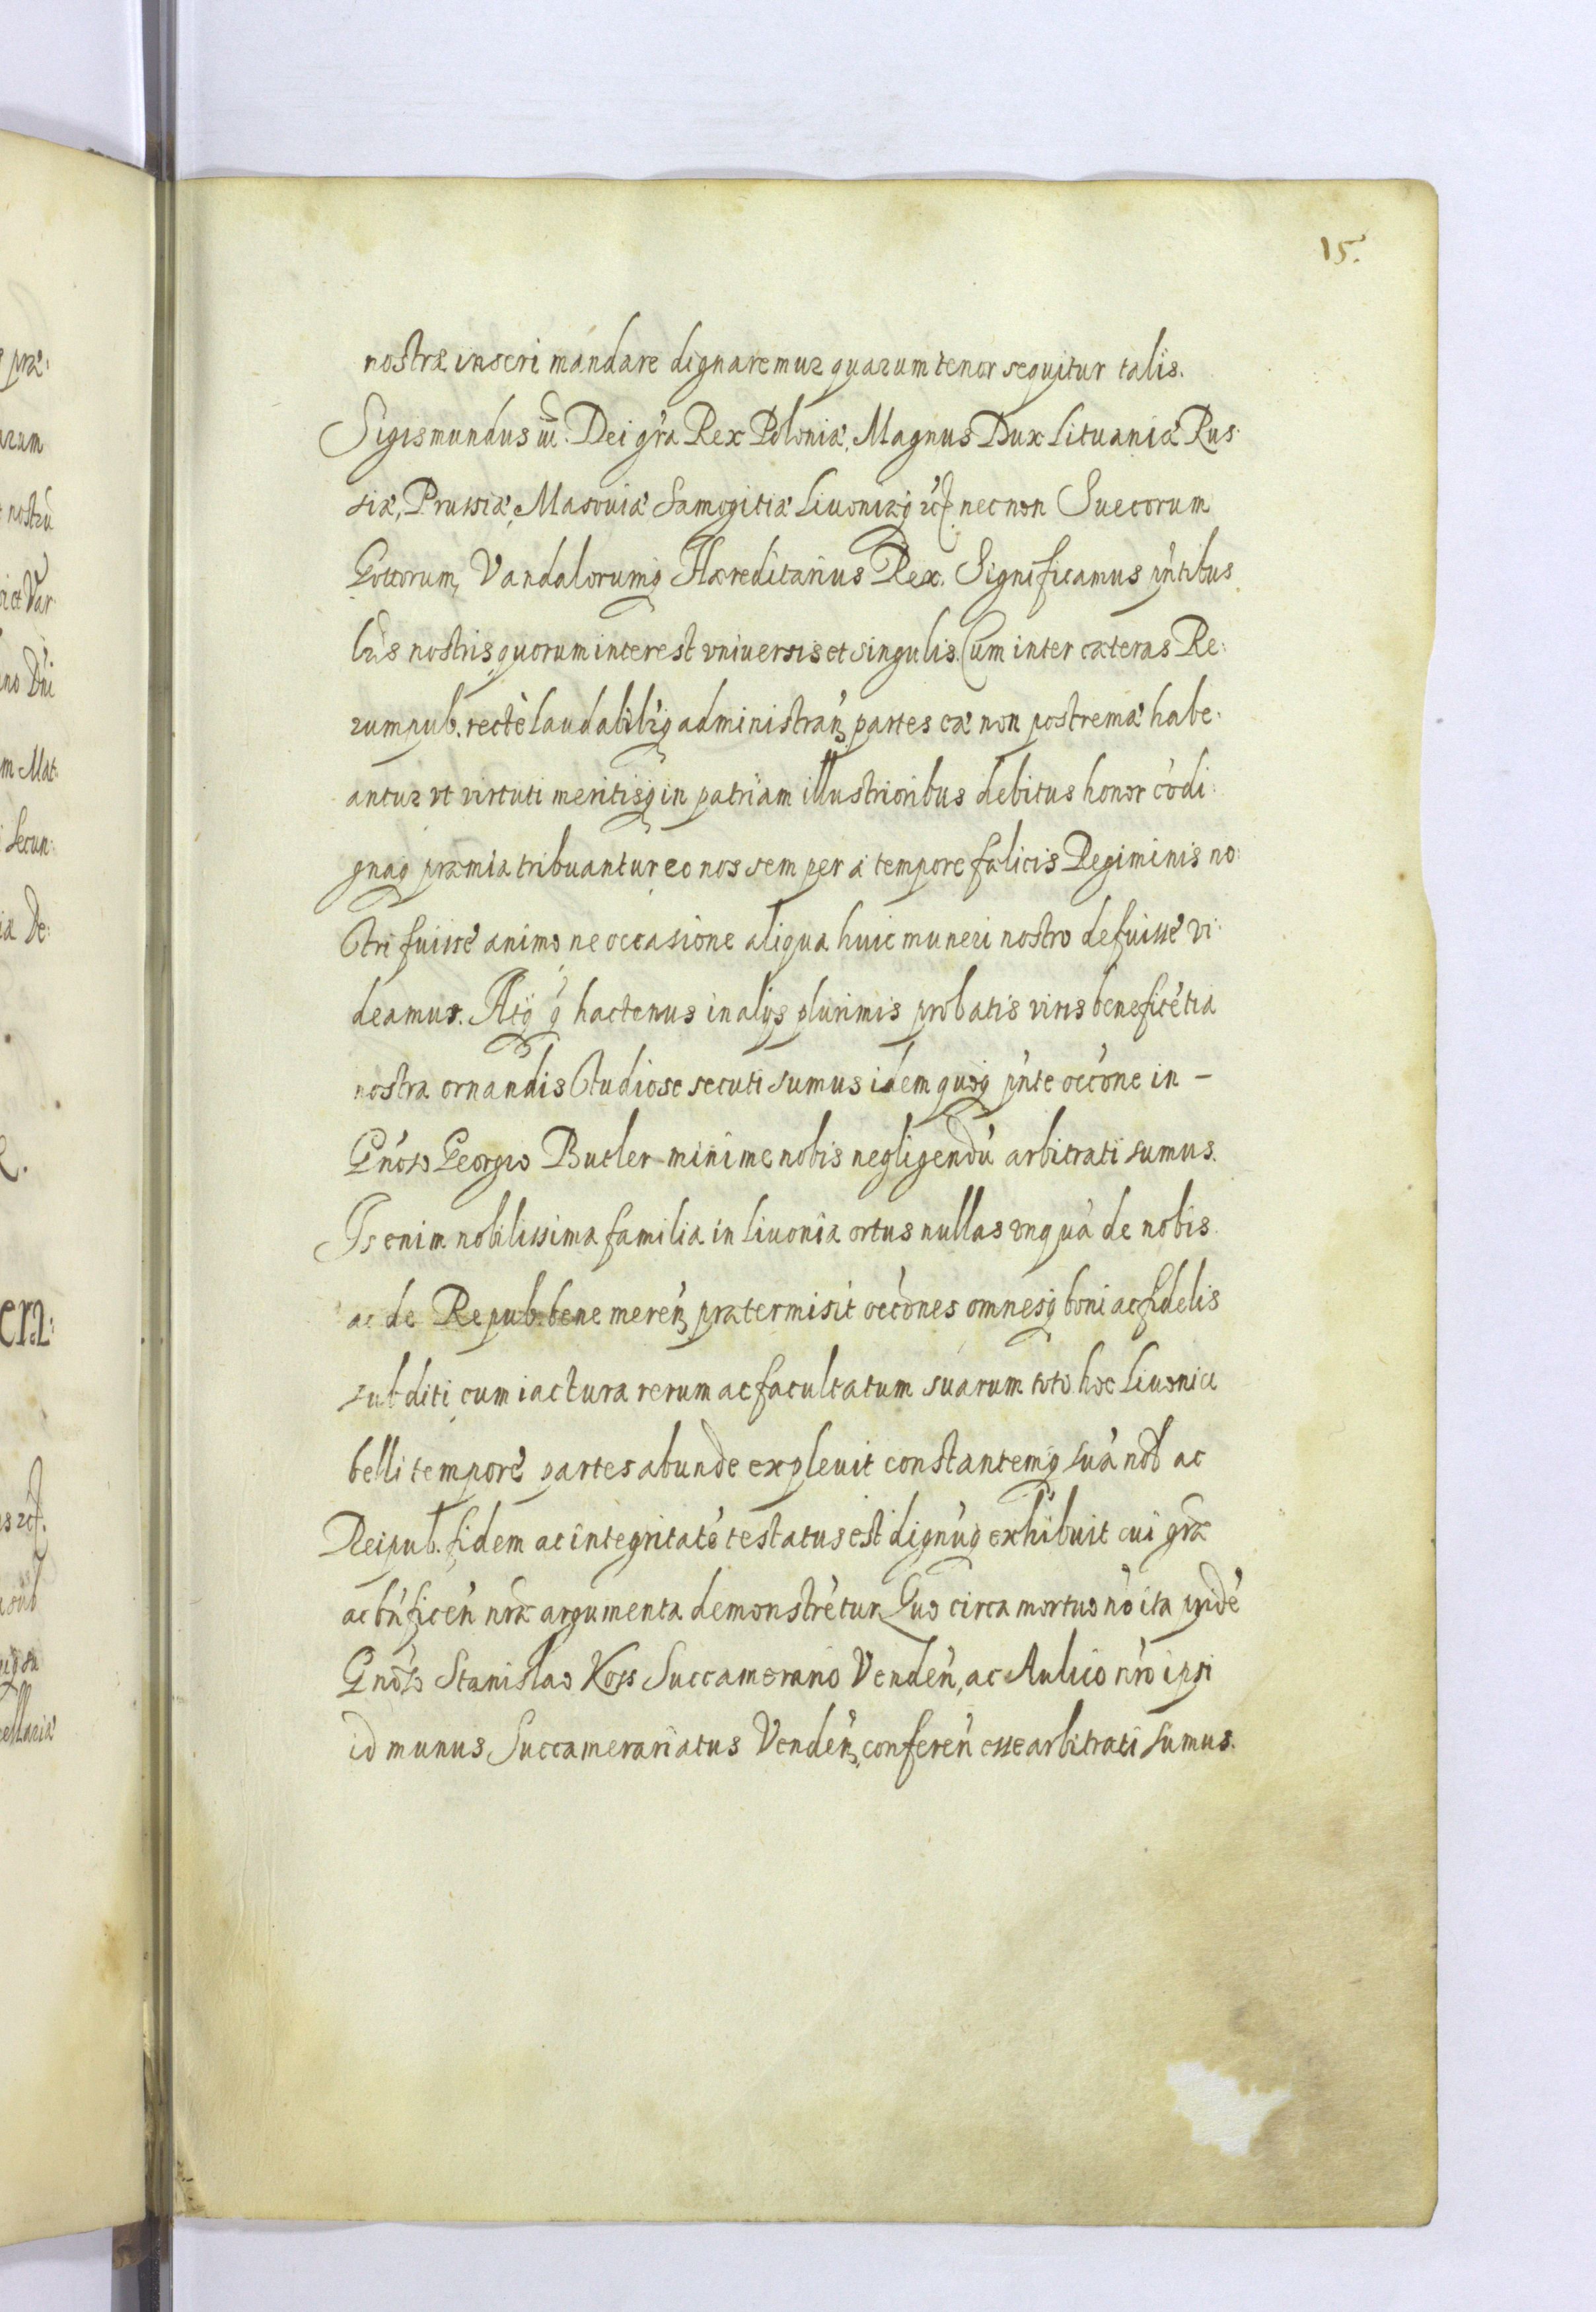 15.
nostræ inseri mandare dignaremur quarum tenor sequitur talis.
Sigismundus iii. Dei gr̃a Rex Poloniæ, Magnus Dux Lituaniæ Rus:
siæ, Prussiæ, Masouiæ Samogitiæ Liuoniæq̃ etc̃ necnon Suecorum
Gottorum, Vandalorumq̃ Hæreditarius Rex. Significamus pñtibus
lr̃is nostris quorum interest vniuersis et singulis. Cum inter cæteras Re:
rumpub. rectè laudabilr̃q̃ administrañ partes eæ non postremæ habe:
antur vt virtuti meritisq̃ in patriam illustrioribus debitus honor cõdi:
gnaq̃ præmia tribuantur eo nos semper à tempore fælicis Regiminis no:
stri fuisse animo ne occasione aliqua huic muneri nostro defuisse vi:
deamur. Atq̃ q̃ hactenus in alijs plurimis probatis viris beneficẽtia
nostra ornandis studiose secuti sumus idem quoq̃ pñte occõne in –
Gñoso Georgio Butler minime nobis negligendũ arbitrati sumus.
Is enim nobilissima familia in Liuonia ortus nullas vnquã de nobis
ac de Repub. bene mereñ prætermisit occõnes omnesq̃ boni ac fidelis
subditi cum iactura rerum ac facultatum suarum toto hoc Liuonici
belli tempore partes abunde expleuit constantemq̃ suã nob ac
Reipub. fidem ac integritatẽ testatus est dignũq̃ exhibuit cui gr̃æ
ac bñficeñ nr̃æ argumenta demonstrẽtur Quo circa mortuo nõ ita pridẽ
Gñoso Stanislao Koss Succamerario Vendeñ, ac Aulico nr̃o ipsi
id munus Succamerariatus Vendeñ, confereñ esse arbitrati sumus.